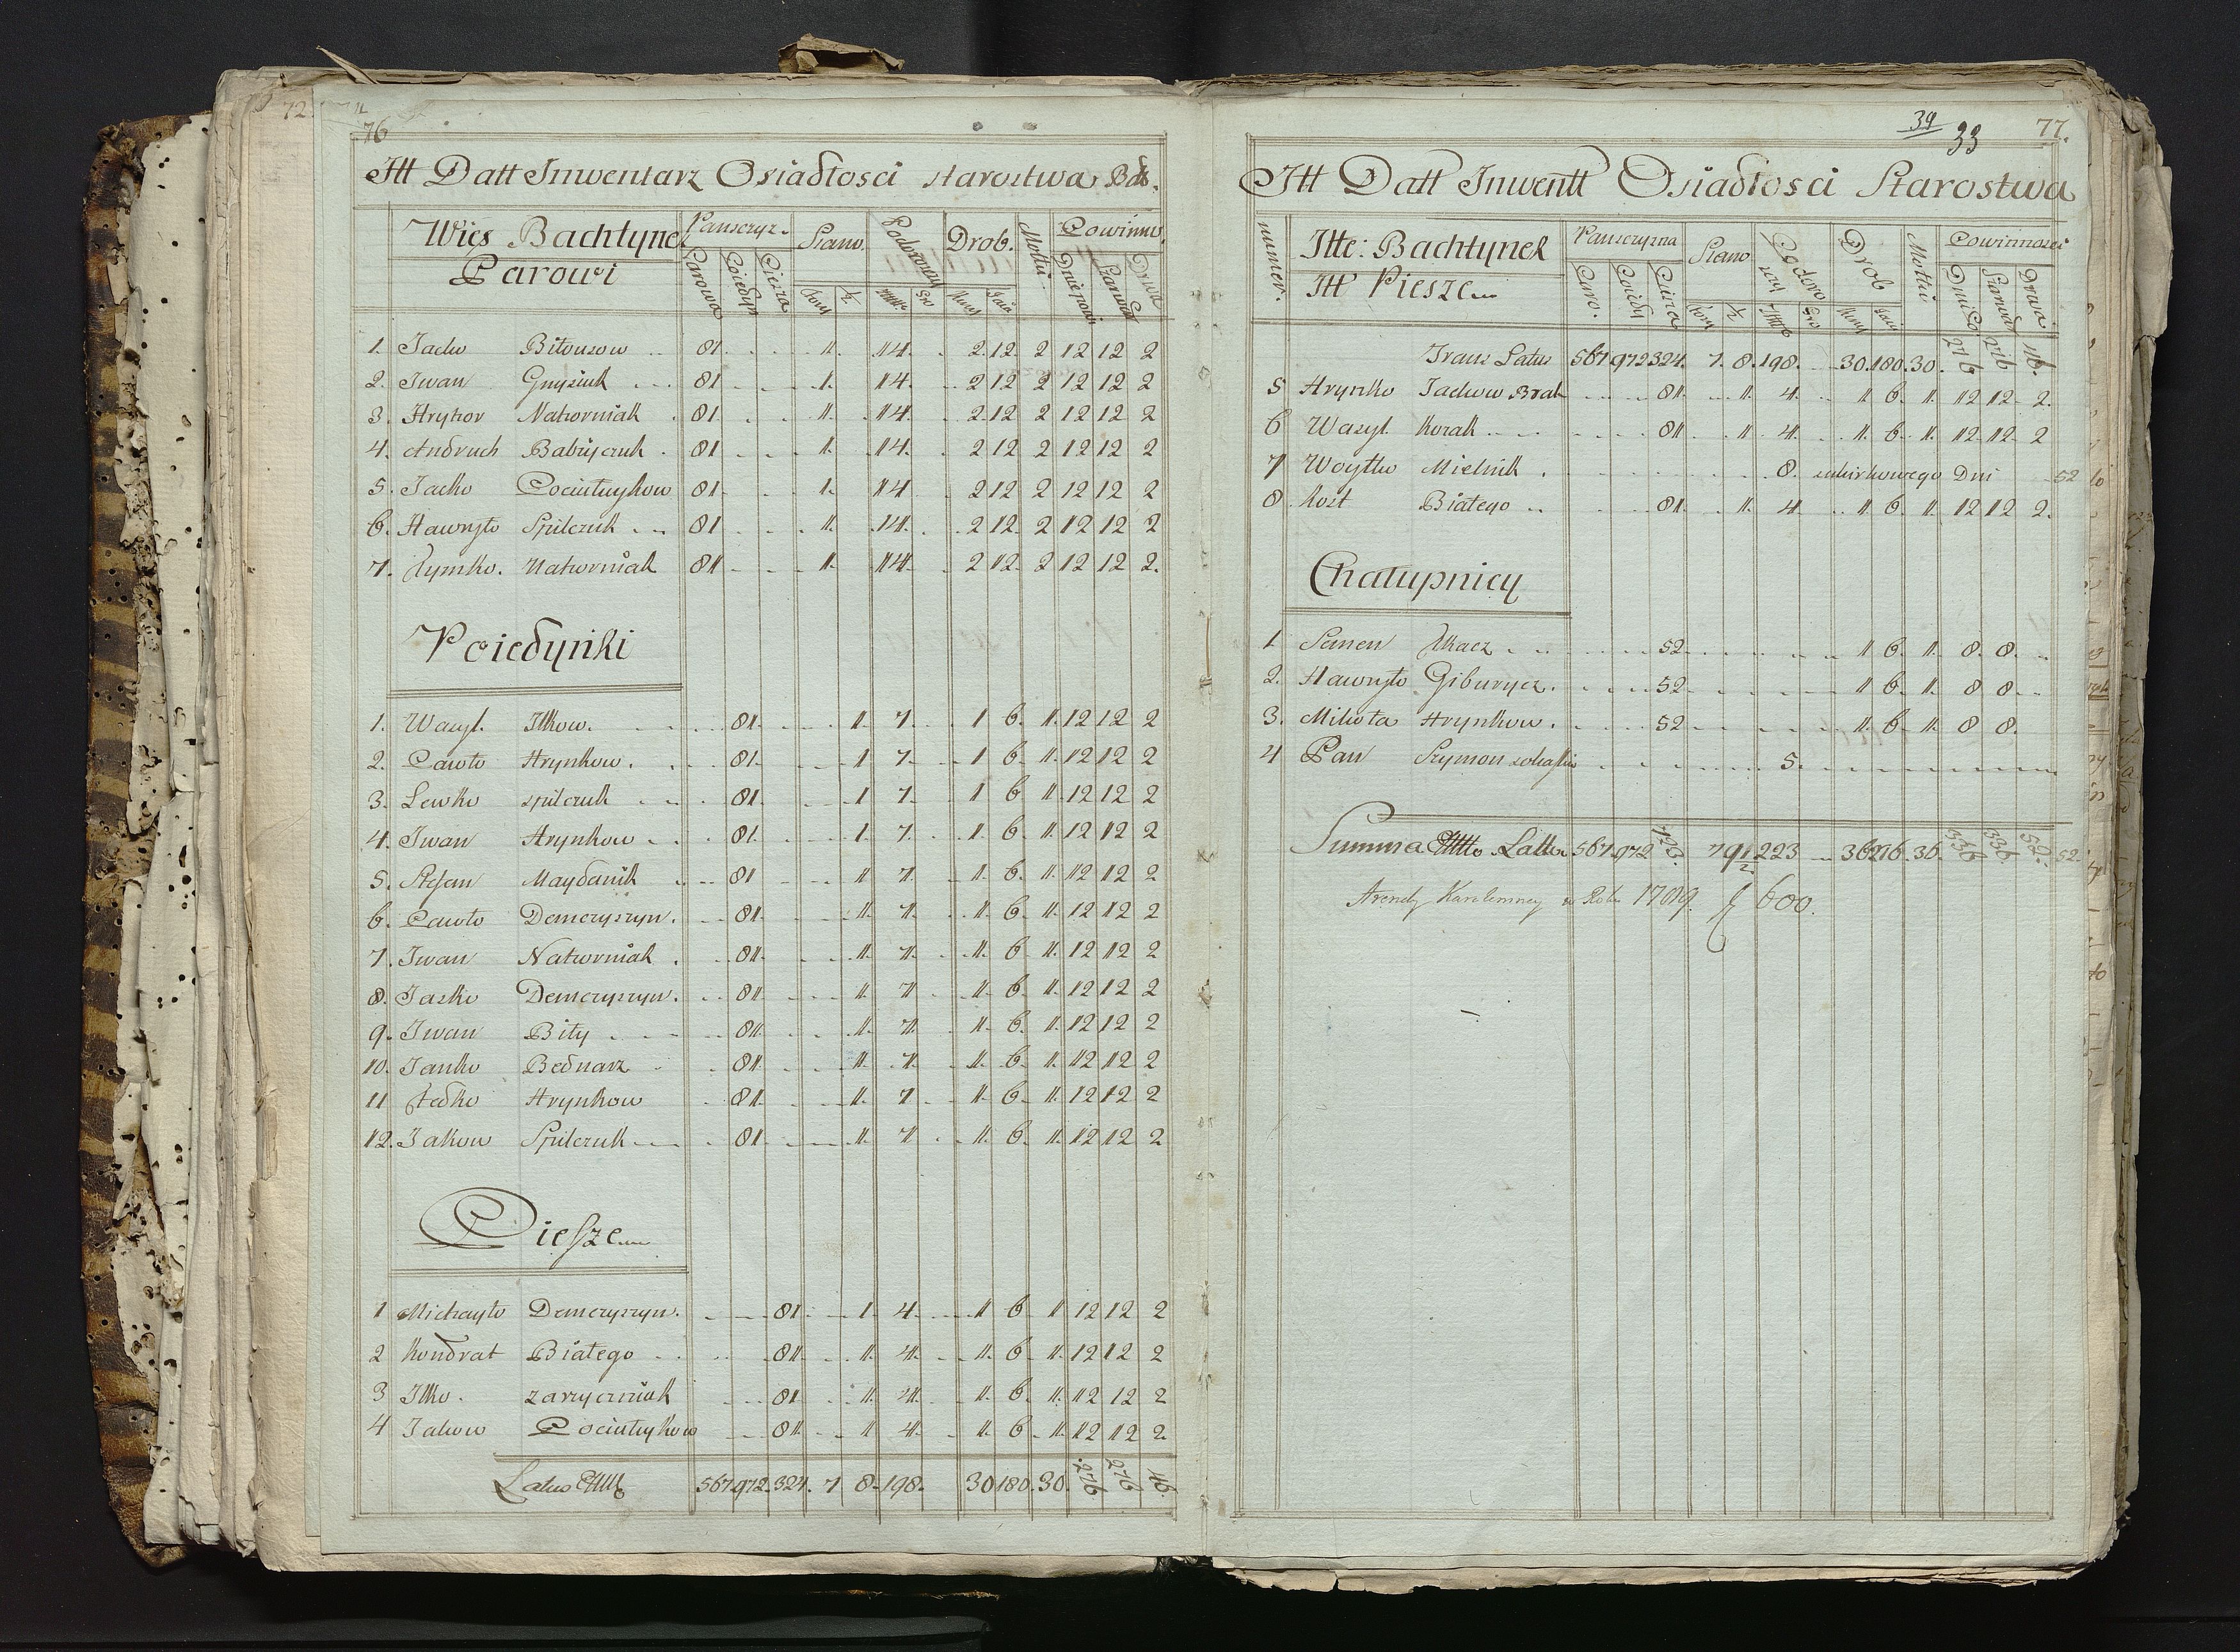 76
Itt Datt Inwentarz Osiadłosci starostwa Bar.
Wies Bachtynek Panszczyz. Siano. Podorowszy Drob. Mottki Powinno.
Parowi Parowa Poiedyn Piesza fory ½ gro kury Jaia Dnie powin Szarwar Drwa
1. Jacko Bitousow .. 81. . . . 1. . 14. . 2. 12. 2 12 12 2
2. Iwan Gnyziuk ... 81 . . . 1. . 14. . 2 12 2 12 12 2
3. Hryhor Nahorniak . 81. . . . 1. . 14. . 2. 12 2 12 12 2
4. Andruch Babijczuk . 81 . . . 1. . 14. . 2 12 2 12 12 2
5. Jacko Pociułuykow 81 . . . 1. . 14 . 2 12 2 12 12 2
6. Hawryło Spilczuk ... 81 . . . 1. . 14. . 2 12. 2 12 12 2
7. Tymko. Nahorniak 81 . . . 1. . 14. . 2 12. 2 12 12 2.
Poiedyńki
1. Wasyl. Ilkow. 81. 1. 7. 1 6. 1. 12 12 2
2. Pawło Hrynkow. 81. 1 7. 1 6 1. 12 12 2
3. Lewko spilczuk 81. 1 7. 1 6 1. 12 12 2
4. Iwan Hrynkow 81. 1. 7. 1. 6. 1. 12 12 2
5. Stefan Maydanik 81 1 7. 1. 6. 1. 12 12 2
6. Pawło Demczyszyn. 81. 1. 7. 1. 6. 1. 12 12 2
7. Iwan Nahorniak. 81. 1. 7. 1. 6 1. 12 12 2
8. Jasko Demczyszyn. 81 1. 7 1. 6. 1. 12 12 2
9. Iwan Bity 81. 1. 7. 1. 6. 1. 12 12 2
10. Janko Bednarz 81. 1. 7. 1. 6. 1. 12 12 2
11 Fedko Hrynkow 81. 1. 7 1. 6. 1. 12 12 2
12. Jakow Spilczuk 81. 1. 7 1. 6. 1. 12 12 2
Piesze
1 Michayło Demczyszyn. 81. 1. 4. 1 6. 1 12 12 2
2 Kondrat Białego 81. 1. 4. 1. 6 1. 12 12 2
3 Ilko. zarzyczniak 81. 1. 4. 1. 6. 1. 12 12 2
4 Jakow Pociułuykow 81. 1 4. 1. 6 1. 12 12 2.
Latus 567. 972. 324. 7 8. 198. 30 180. 30. 276 276 46.
39 33 77.
Itt Datt Inwentt Osiadłosci Starostwa
numer. Itte: Bachtynek Panszczyzna Siano Podoro wszy Drob Mottki Powinnosci
Itt Piesze Paro. Poiedy Piesza fory ½ gro kury Jaia Dni Po Szarwar Drwa.
Trans Latus 567. 972 324. 7. 8. 198. 30. 180. 30. 276 276 46.
5 Hrynko Jackow Brat 81. 1. 4. 1 6. 1. 12 12 2.
6 Wasyl. Kozak 81 1. 4. 1. 6. 1. 12. 12. 2
7 Woytko Mielnik. 8. Dni 52
8 Kost Białego 81. 1. 4 1 6. 1. 12 12 2.
Chałupnicy
1 Semen Tkacz 52 1 6. 1. 8. 8.
2. Hawryło Giburycz. 52 1 6. 1. 8 8
3. Mikoła Hrynkow. 52 1. 6. 1. 8 8.
4 Pan Szymon 5.
Summa 567. 972 723. 7 9½ 223 36 216. 36. 336 336 52. 52.
Arendy Karczemney w Roku 1789. f 600.